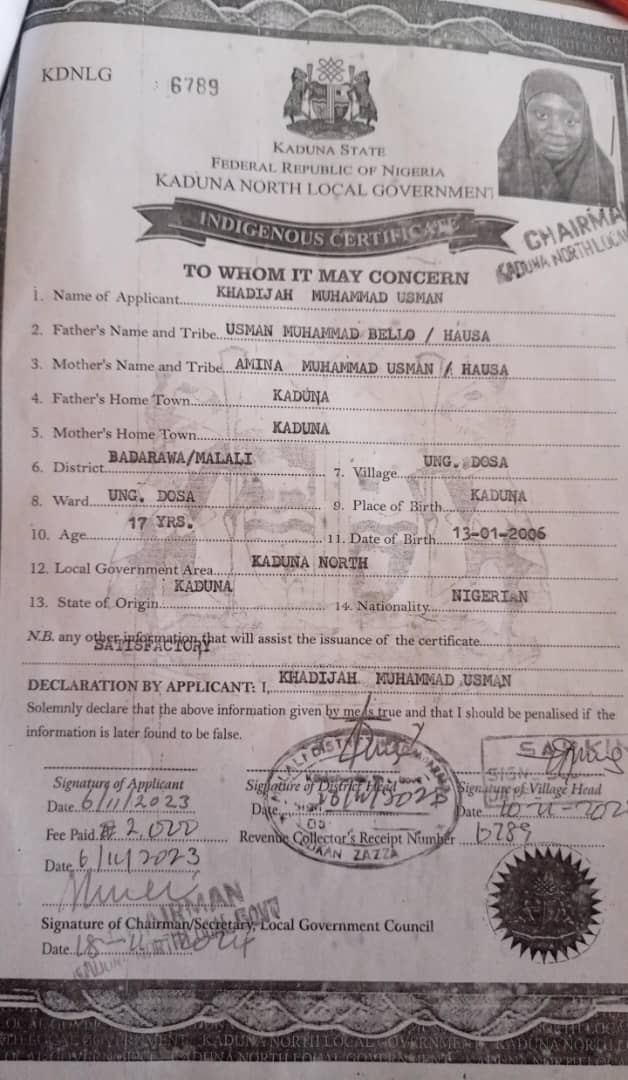 KDNLG
6789
KADUNA STATE
FEDERAL REPUBLIC OF NIGERIA
KADUNA NORTH LOCAL GOVERNMENT
INDIGENOUS CERTIFICATE
CHAIRMA
KADUNA NORTH LOCA
TO WHOM IT MAY CONCERN
1. Name of Applicant....KHADIJAH MUHAMMAD USMAN
2. Father's Name and Tribe..USMAN MUHAMMAD BELLO / HAUSA
3. Mother's Name and Tribe AMINA MUHAMMAD USMAN / HAUSA
4. Father's Home Town....KADUNA
5. Mother's Home Town....KADUNA
6. District....BADARAWA/MALALI 7. Village....UNG. DOSA
8. Ward....UNG. DOSA 9. Place of Birth....KADUNA
10. Age....17 YRS. 11. Date of Birth....13-01-2006
12. Local Government Area....KADUNA NORTH
13. State of Origin....KADUNA 14. Nationality....NIGERIAN
N.B. any other information that will assist the issuance of the certificate....
SATISFACTORY
DECLARATION BY APPLICANT: I, KHADIJAH MUHAMMAD USMAN
Solemnly declare that the above information given by me is true and that I should be penalised if the
information is later found to be false.
Signature of Applicant Signature of District Head Signature of Village Head
Date 6/11/2023 Date Date
Fee Paid ₦ 2,000 Revenue Collector's Receipt Number 6789
Date 6/11/2023
Signature of Chairman/Secretary, Local Government Council
Date